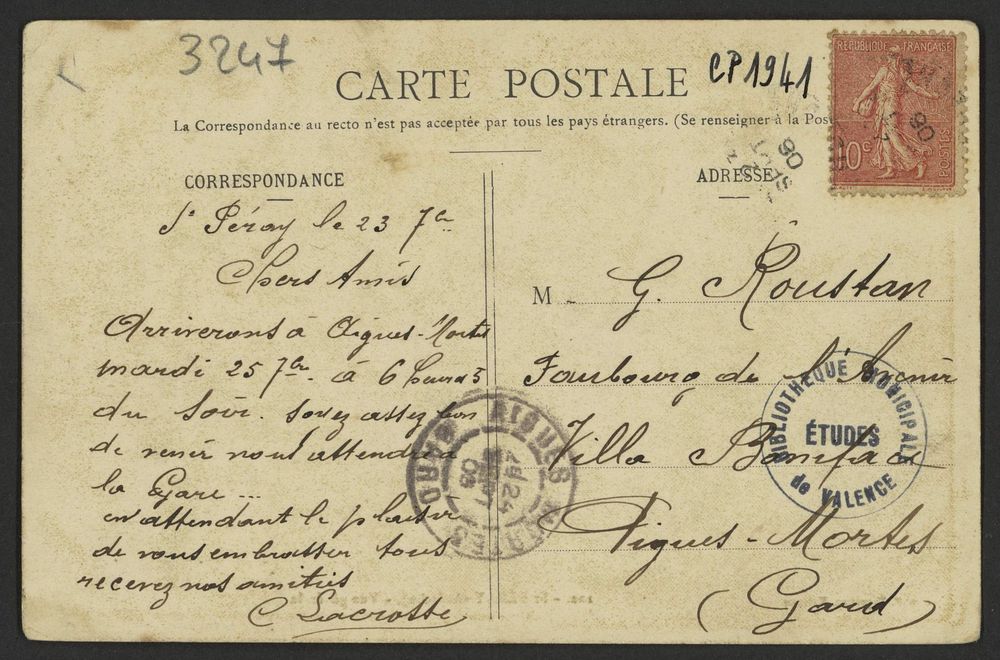 3247
CP1941
CARTE POSTALE
La Correspondance au recto n'est pas acceptée par tous les pays étrangers. (Se renseigner à la Pos
REPUBLIQUE FRANÇAISE
10c
POSTES
CORRESPONDANCE
St Péray le 23 7bre
Chers Amis
Arriverons à Aigues-Mortes
mardi 25 7bre à 6 heures
du soir. Soyez assez bon
de venir nous attendre à
la Gare...
en attendant le plaisir
de vous embrasser tous
recevez nos amitiés
C. Lacroste
ADRESSE
M G. Roustan
Faubourg de l'Avenir
Villa Boniface
Aigues-Mortes
(Gard)
BIBLIOTHÈQUE MUNICIPALE
ÉTUDES
de VALENCE
AIGUES MORTES
24
SEPT
06
GARD